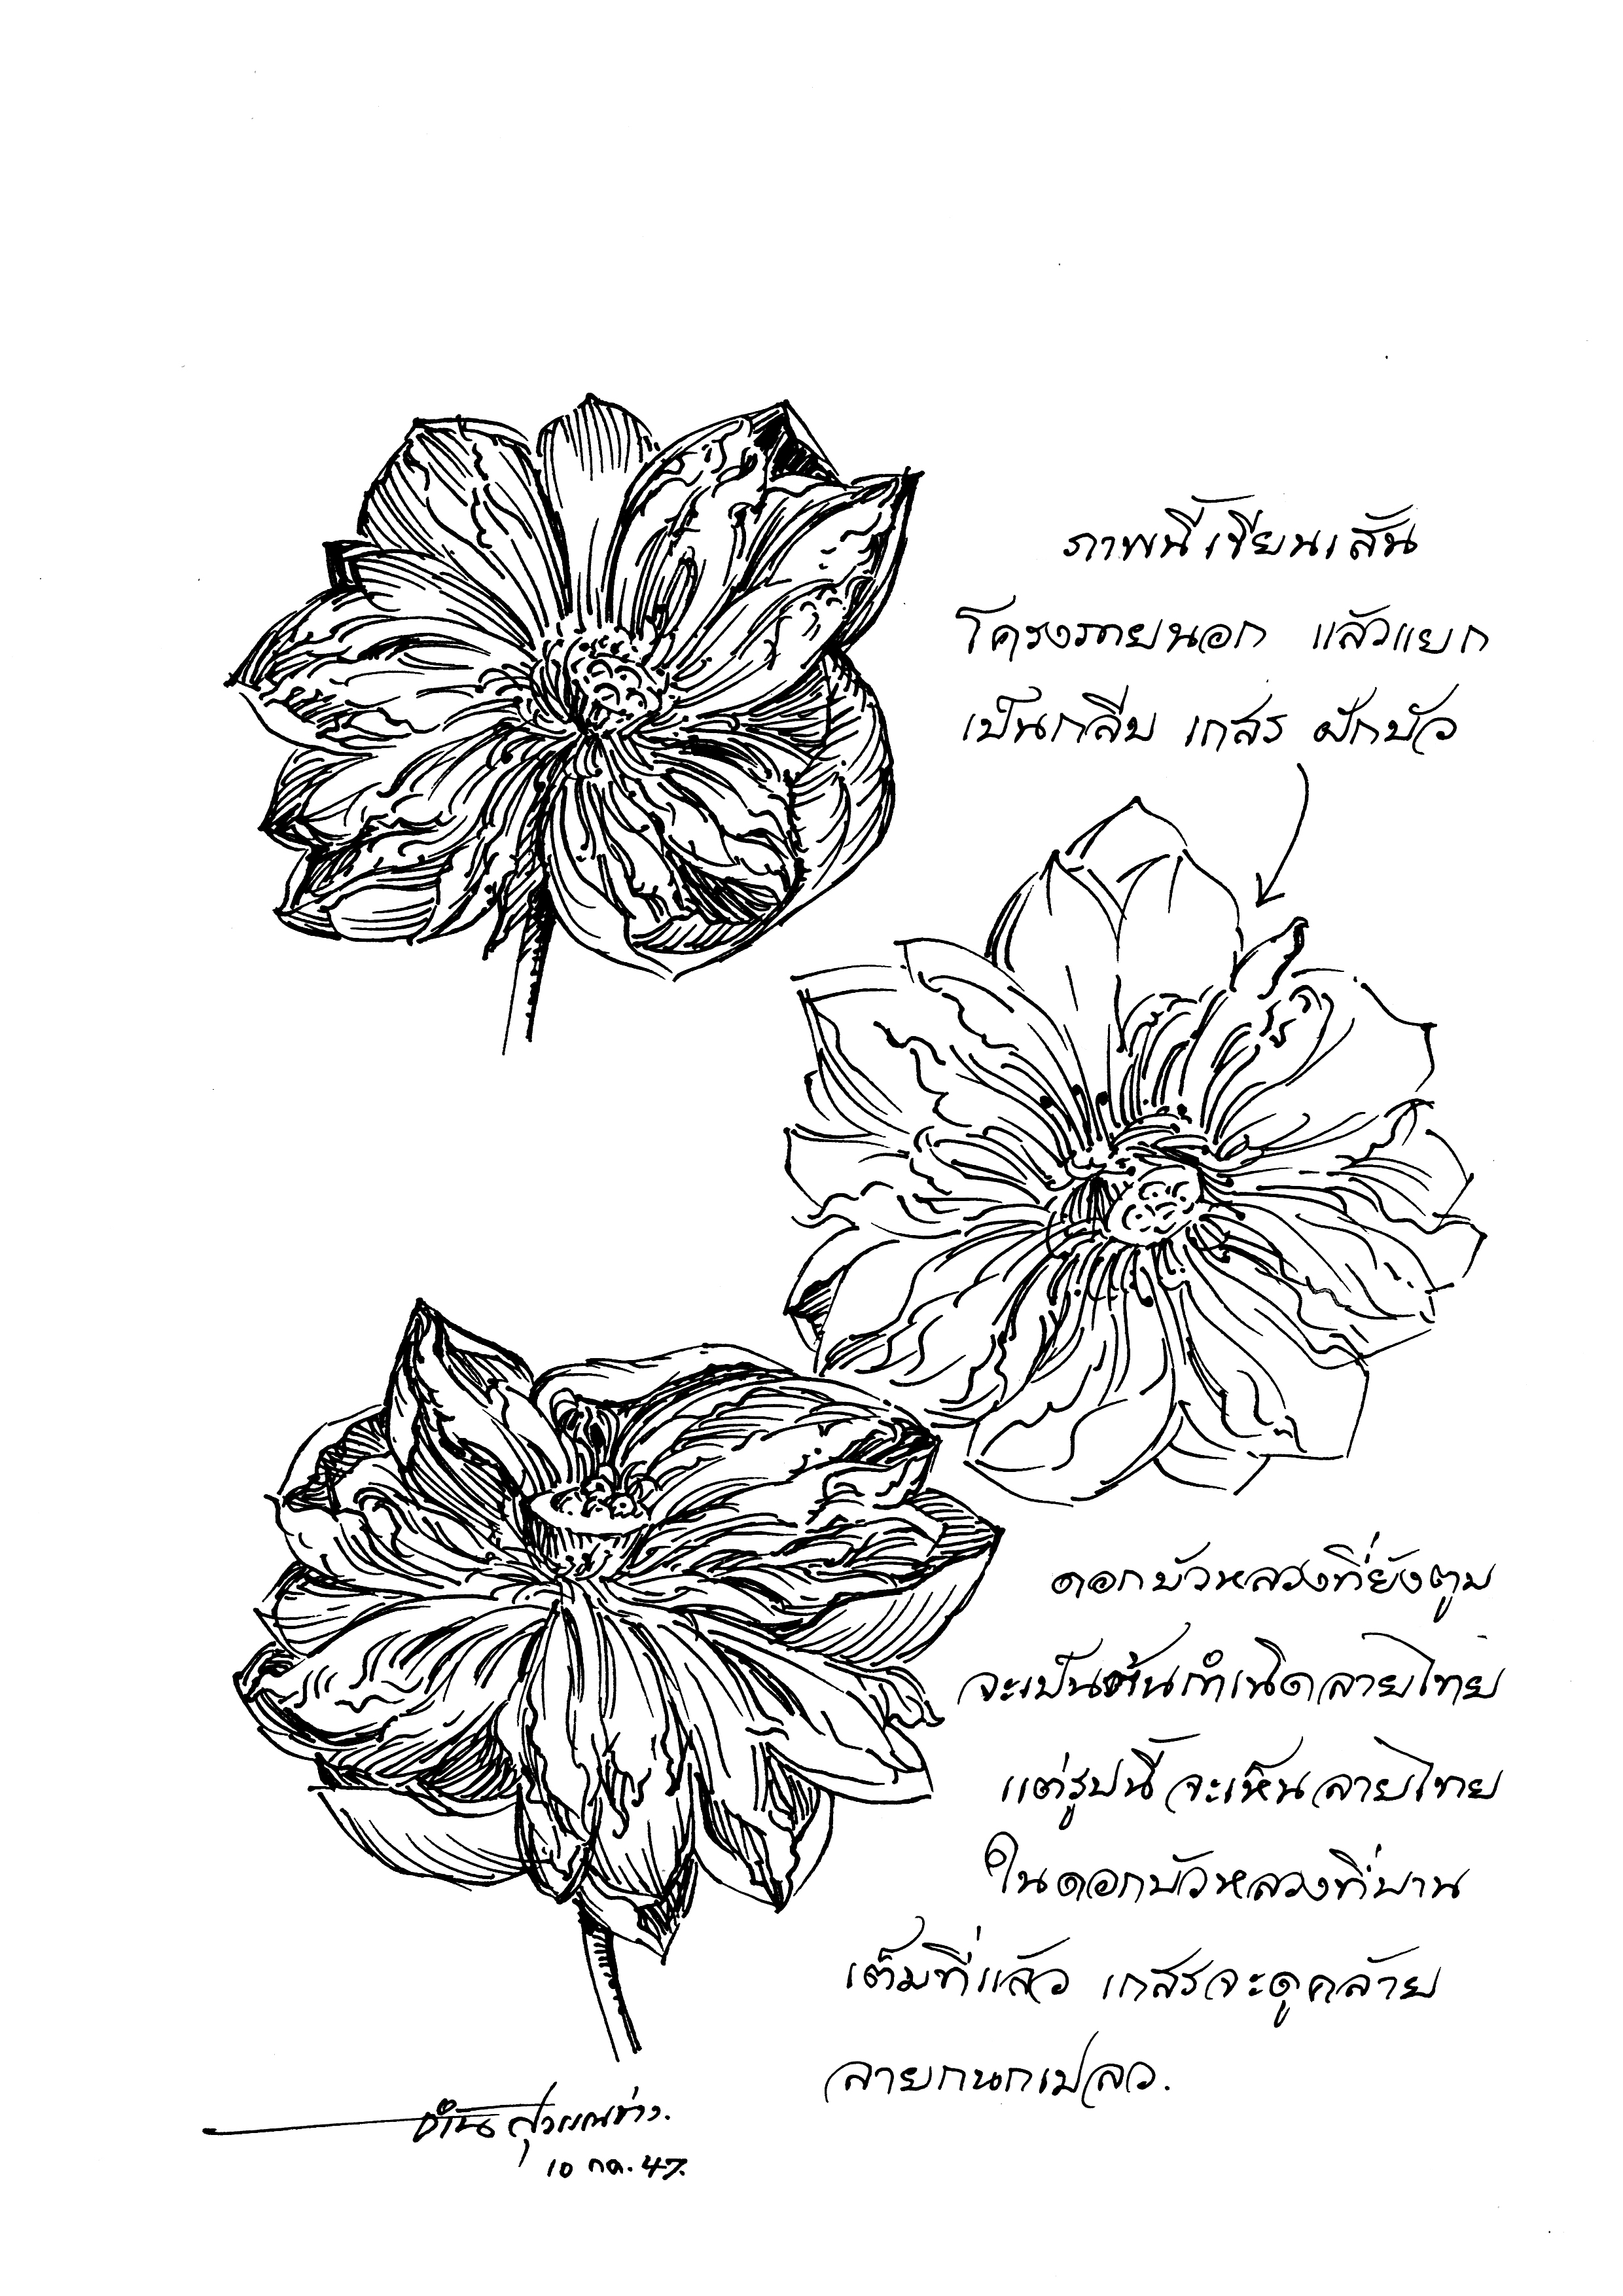 ภาพนี้เขียนเส้น
โครงภายนอก แล้วแยก
เป็นกลีบ เกสร ฝักบัว
ดอกบัวหลวงที่ยังตูม
จะเป็นต้นกำเนิดลายไทย
แต่รูปนี้จะเห็นลายไทย
ในดอกบัวหลวงที่บาน
เต็มที่แล้ว เกสรจะดูคล้าย
ลายกนกเปลว.
10 กค. 47.